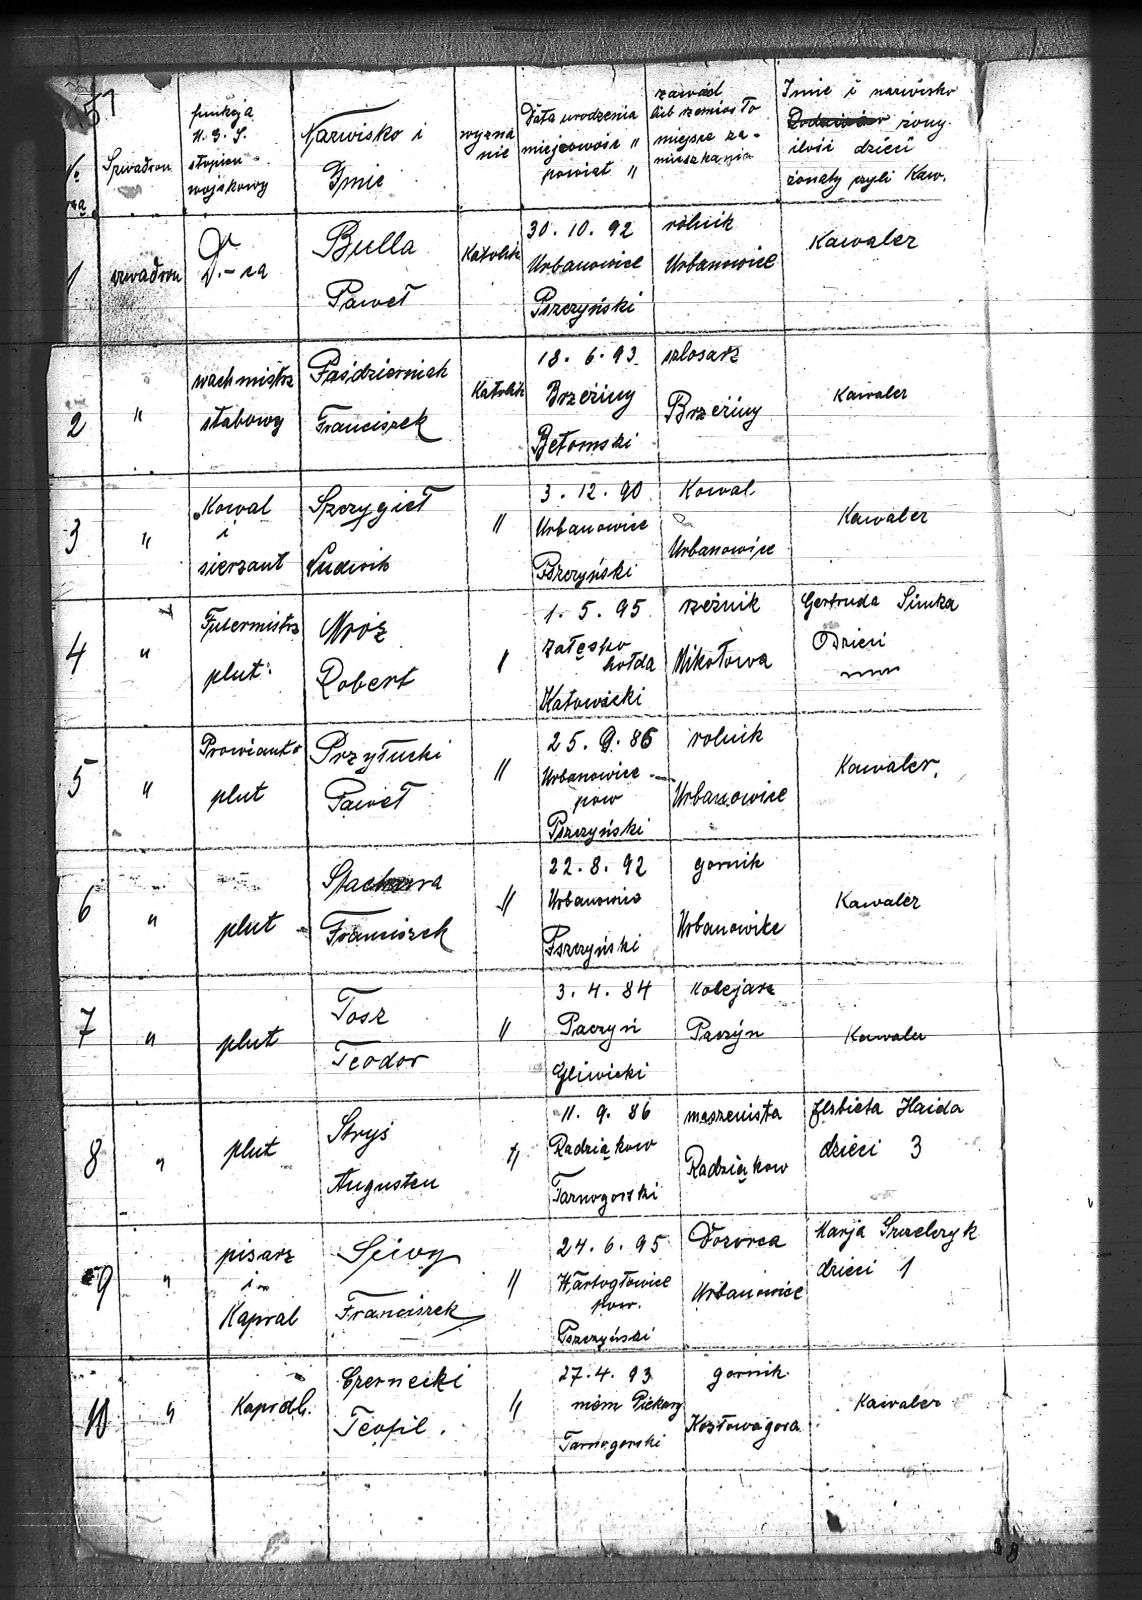 57
Szwadron
funkcja
N. G. S.
stopień
wojskowy
Nazwisko i
Imie
wyzna
nie
Data urodzenia
miejscowość "
powiat "
zawód
lub rzemiosło
miejsce za-
mieszkania
Imie i nazwisko
żony
ilość dzieci
żonaty czyli Kaw.
1 szwadron D.-ca Bulla
Paweł
Katolik
30. 10. 92
Urbanowice
Pszczyński
rólnik
Urbanowice
Kawaler
2 " wachmistrz
stabowy
Paśdziernich
Franciszek
Katolik
18. 6. 93
Brzeziny
Betomski
szlosarz
Brzeziny
Kawaler
3 " Kowal
i
sierzant
Szczygieł
Ludwik
"
3. 12. 90
Urbanowice
Pszczyński
Kowal
Urbanowice
Kawaler
4 " Futermistrz
plut.
Mroz
Robert
"
1. 5. 95
Załęsko
hołda
Katowicki
rzeźnik
Mikołowa
Gertruda Simka
Dzieci
5 " Prowianto
plut
Przyłucki
Paweł
"
25. 9. 86
Urbanowice
pow
Pszczyński
rolnik
Urbanowice
Kawaler.
6 " plut
Stachura
Franciszek
"
22. 8. 92
Urbanowic
Pszczyński
gornik
Urbanowice
Kawaler
7 " plut
Tosz
Teodor
"
3. 4. 84
Paczyń
Gliwicki
Kolejarz
Paczyn
Kawaler
8 " plut
Stryś
Augusten
"
11. 9. 86
Radziąkow
Tarnogorski
maszenista
Radziąkow
Elzbieta Haida
dzieci 3
9 " pisarz
i
Kapral
Sciory
Franciszek
"
24. 6. 95
Wartogłowice
pow.
Pszczyński
Dozorca
Urbanowice
Marja Strzelczyk
dzieci 1
10 " Kapral.
Czernecki
Teofil.
"
27. 4. 93
niem Piekary
Tarnogorski
gornik
Kozłowagora
Kawaler